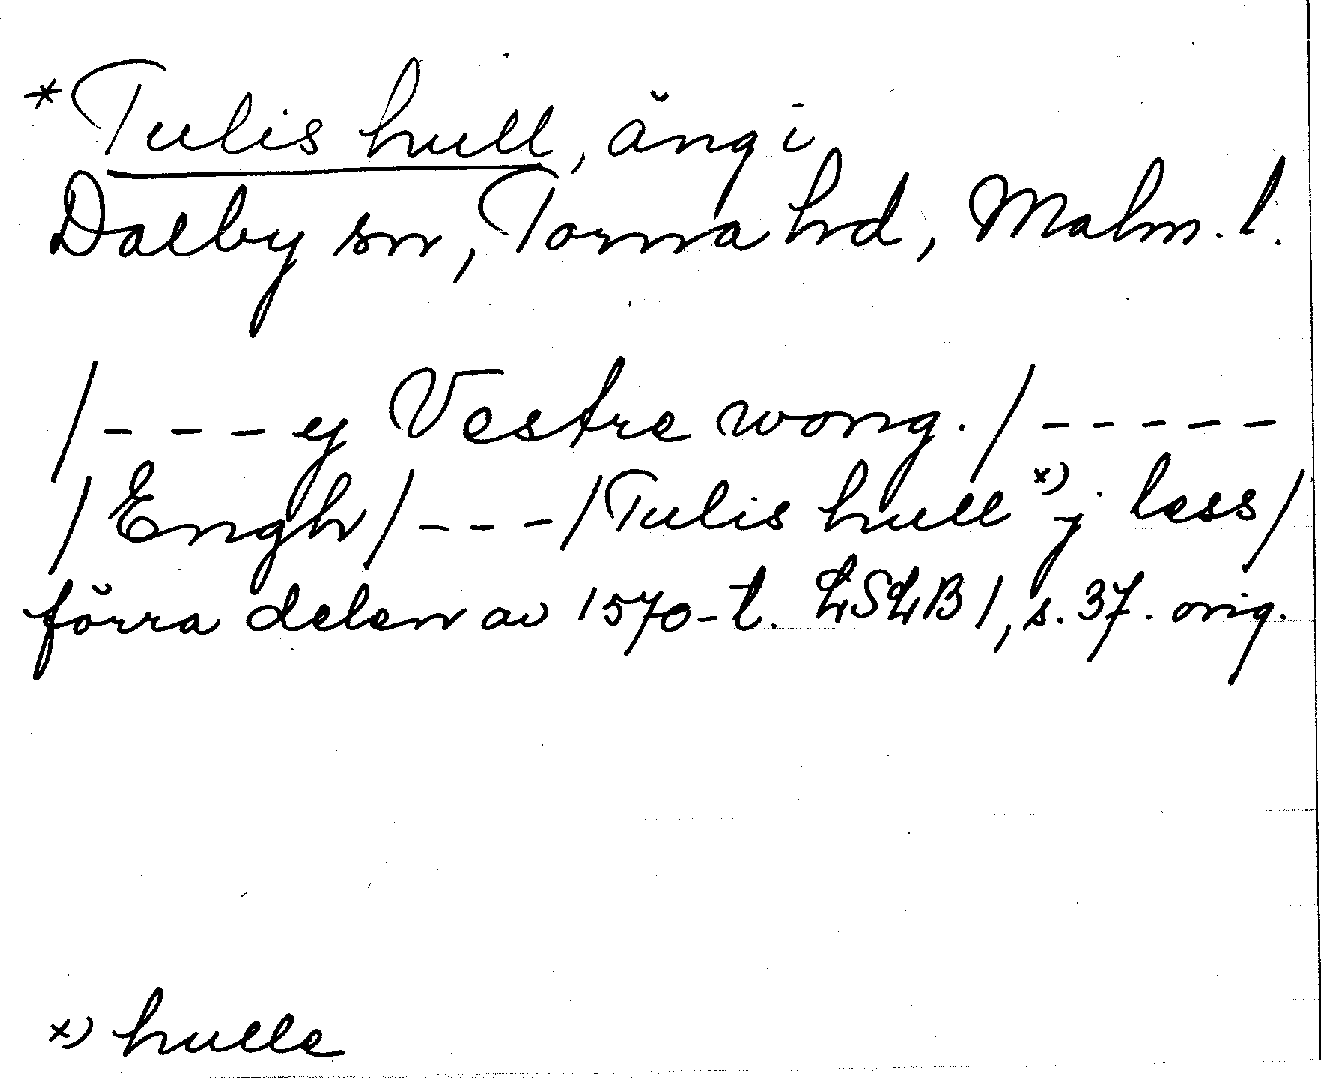 *Tulis hull, äng i
Dalby sn, Torna hd, Malm. l.
/---ij Vestre wong./-----
/Engh/---/Tulis hull x) j less/
förra delen av 1570-t. LSLB 1, s. 37. orig.
x) hulle